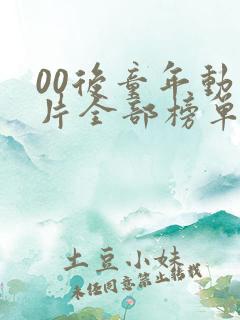 00後童年動
片全部榜單
土豆小妹
未经同意禁止转载